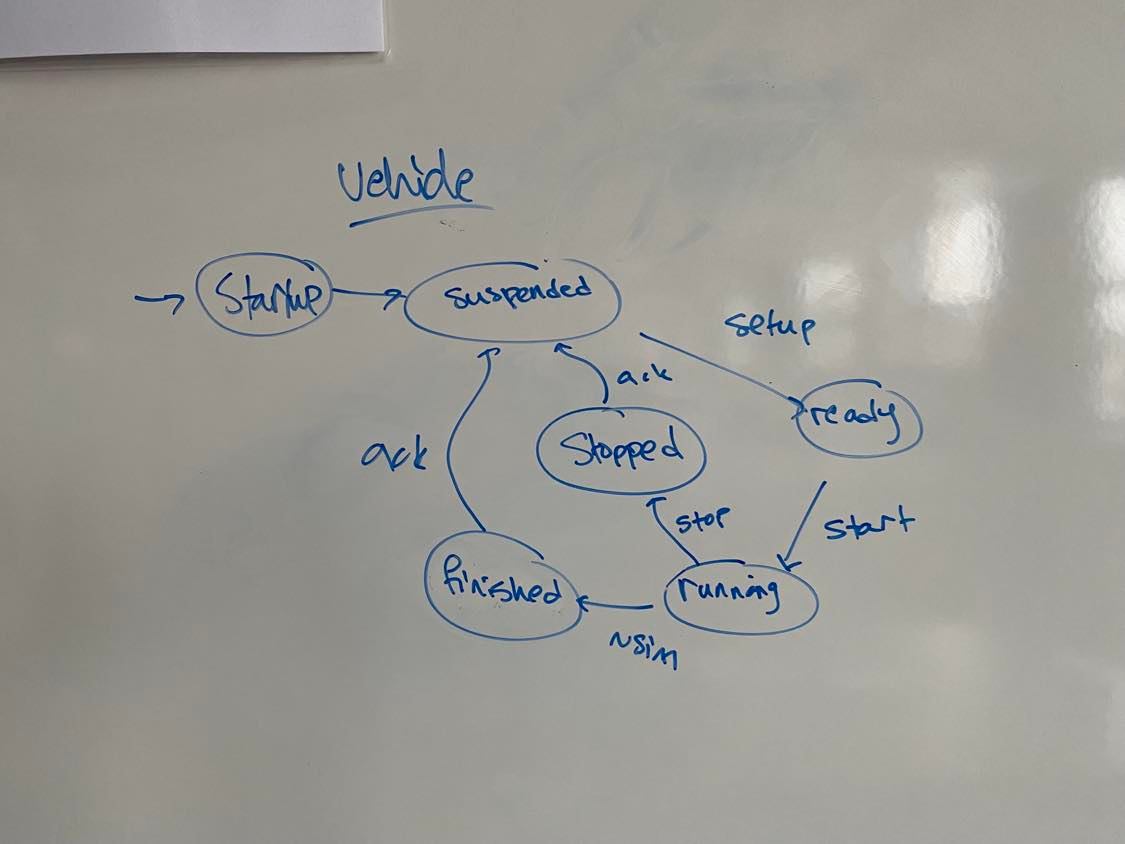 Vehicle
Startup
suspended
setup
ack
ready
ack
Stopped
stop
start
finished
running
NSIM